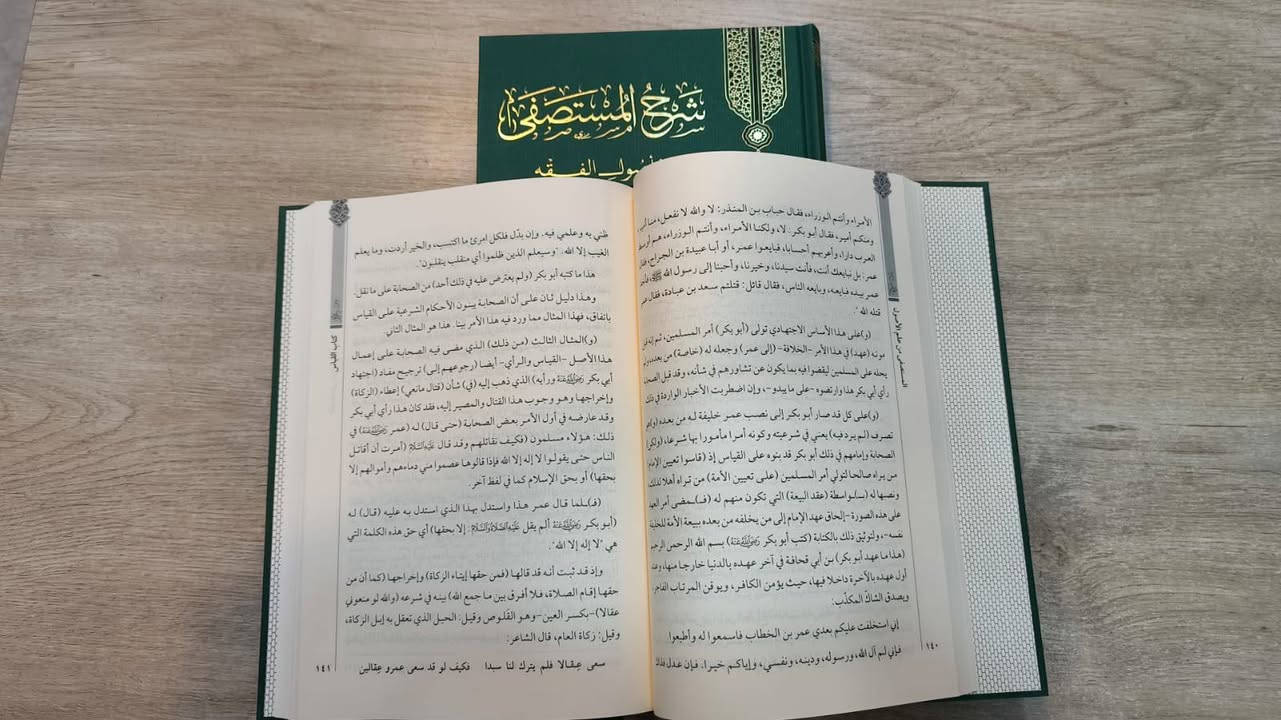 شرح المستصفى
أصول الفقه
المستصفى من علم الأصول
الأمراء وأنتم الوزراء، فقال حباب بن المنذر: لا والله لا نفعل، منا أمير
ومنكم أمير، فقال أبو بكر: لا، ولكنا الأمراء، وأنتم الوزراء، هم أوسط
العرب دارا، وأعربهم أحسابا، فبايعوا عمر، أو أبا عبيدة بن الجراح، فقال
عمر: بل نبايعك أنت، فأنت سيدنا، وخيرنا، وأحبنا إلى رسول الله ﷺ، فأخذ
عمر بيده فبايعه، وبايعه الناس، فقال قائل: قتلتم سعد بن عبادة، فقال عمر
قتله الله".
(و)على هذا الأساس الاجتهادي تولى (أبو بكر) أمر المسلمين، ثم إنه
مونه (عهد) في هذا الأمر -الخلافة- (إلى عمر) وجعله له (خاصة) من بعده
يحله على المسلمين ليقصوا فيه بما يكون عن تشاورهم في شأنه، وقد قبل الصحابة
رأي أبي بكر هذا وارتضوه -على ما يبدو-، وإن اضطربت الأخبار الواردة في ذلك
(و)على كل قد صار أبو بكر إلى نصب عمر خليفة له من بعده
تصرف (لم يرد فيه) يعني في شرعيته وكونه أمرا مأمورا بها شرعا، (ولكن)
الصحابة وإمامهم في ذلك أبو بكر قد بنوه على القياس إذ (قاسوا تعيين الإمام)
من يراه صالحا لتولي أمر المسلمين (على تعيين الأمة) من تراه أهلا لذلك
ونصبها له (بـ)ـواسطة (عقد البيعة) التي تكون منهم له (فـ)ـمضى أمر العهد
على هذه الصورة -إلحاق عهد الإمام إلى من يخلفه من بعده ببيعة الأمة للخليفة
نفسه-، ولتوثيق ذلك بالكتابة (كتب أبو بكر رضي الله عنه) بسم الله الرحمن الرحيم
(هذا ما عهد أبو بكر) بن أبي قحافة في آخر عهده بالدنيا خارجا منها، وعند
أول عهده بالآخرة داخلا فيها، حيث يؤمن الكافر، ويوقن المرتاب الفاجر
ويصدق الشاك المكذّب:
إني استخلفت عليكم بعدي عمر بن الخطاب فاسمعوا له وأطيعوا
فإني لم آل الله، ورسوله، ودينه، ونفسي، وإياكم خيرا. فإن عدل فذلك
١٤٠
كتاب القياس
ظني به وعلمي فيه. وإن بدّل فلكل امرئ ما اكتسب، والخير أردت، وما يعلم
الغيب إلا الله. "وسيعلم الذين ظلموا أي منقلب ينقلبون".
هذا ما كتبه أبو بكر (ولم يعترض عليه في ذلك أحد) من الصحابة على ما نقل.
وهذا دليل ثان على أن الصحابة يبنون الأحكام الشرعية على القياس
باتفاق، فهذا المثال مما ورد فيه هذا الأمر بينا. هذا هو المثال الثاني.
(و)المثال الثالث (من ذلك) الذي مضى فيه الصحابة على إعمال
هذا الأصل -القياس والرأي- أيضا (رجوعهم إلى) ترجيح مفاد (اجتهاد
أبي بكر رضي الله عنه ورأيه) الذي ذهب إليه (في) شأن (قتال مانعي) إعطاء (الزكاة)
وإخراجها وهو وجوب هذا القتال والمصير إليه، فقد كان هذا رأي أبي بكر
وقد عارضه في أول الأمر بعض الصحابة (حتى قال) له (عمر رضي الله عنه) في
ذلك: هؤلاء مسلمون (فكيف نقاتلهم وقد قال عليه السلام (أمرت أن أقاتل
الناس حتى يقولوا لا إله إلا الله فإذا قالوها عصموا مني دماءهم وأموالهم إلا
بحقها) أو بحق الإسلام كما في لفظ آخر.
(فـ)ـلما قال عمر هذا واستدل بهذا الذي استدل به عليه (قال) له
(أبو بكر رضي الله عنه ألم يقل عليه الصلاة والسلام: إلا بحقها) أي حق هذه الكلمة التي
هي "لا إله إلا الله".
وإذ قد ثبت أنه قد قالها (فمن حقها إيتاء الزكاة) وإخراجها (كما أن من
حقها إقام الصلاة، فلا أفرق بين ما جمع الله) بينه في شرعه (والله لو منعوني
عقالا)-بكسر العين-وهو القلوص وقيل: الحبل الذي تعقل به إبل الزكاة،
وقيل: زكاة العام، قال الشاعر:
سعى عقالا فلم يترك لنا سبدا فكيف لو قد سعى عمرو عقالين
١٤١